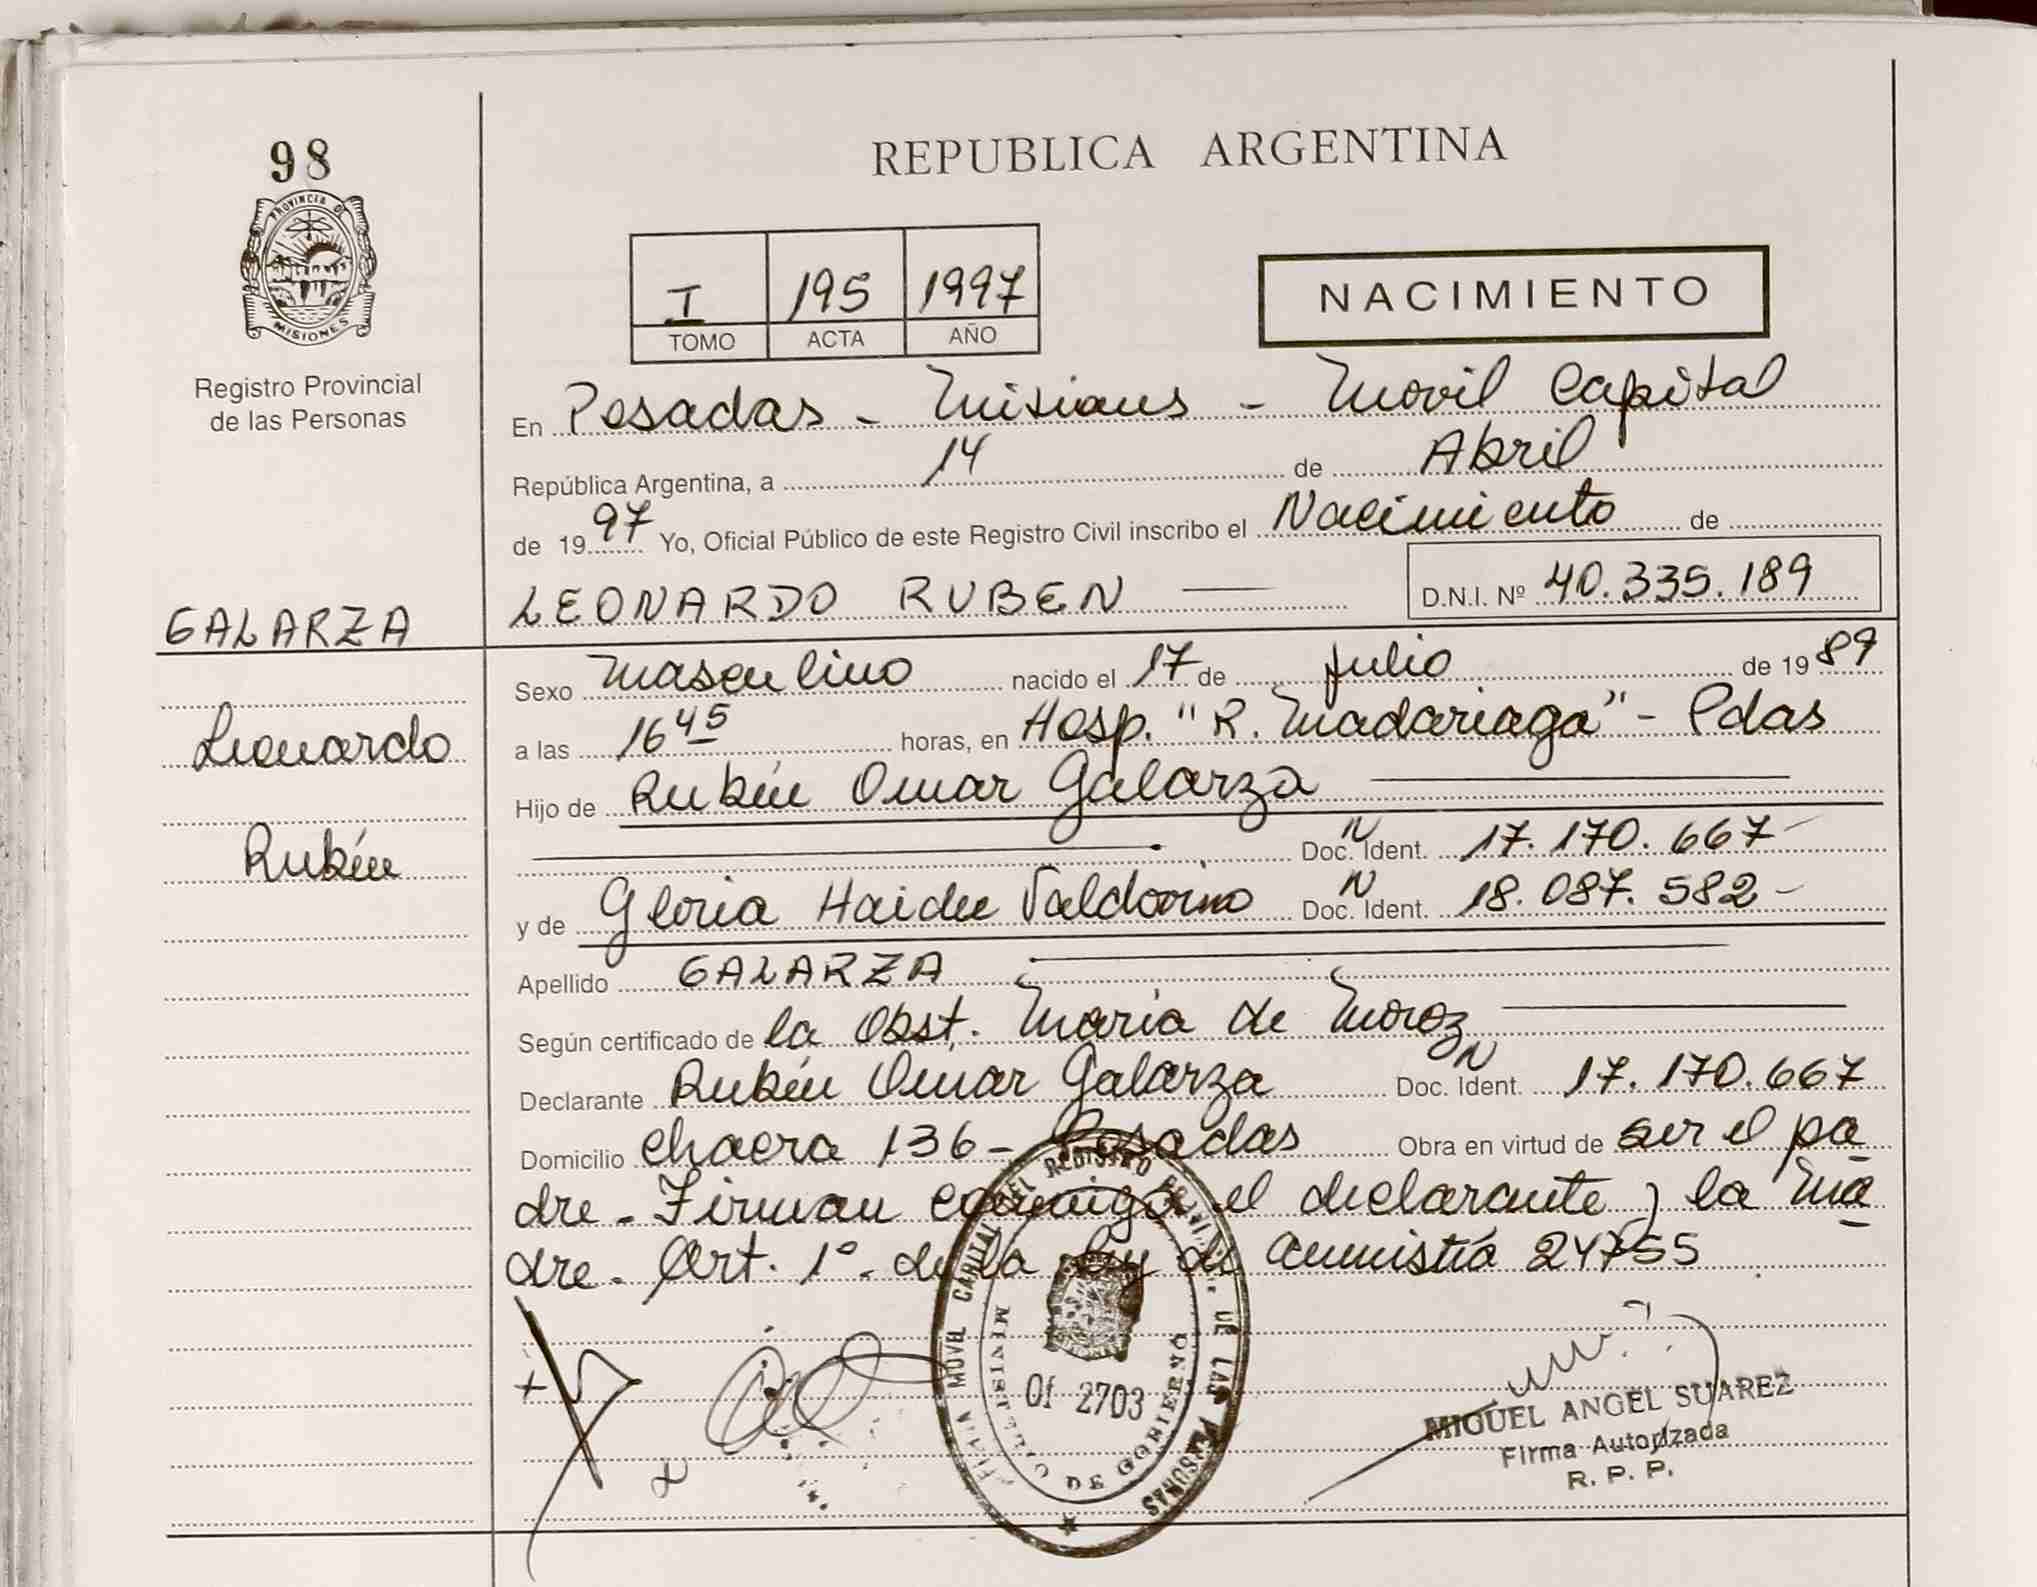 98
PROVINCIA DE
MISIONES
Registro Provincial
de las Personas
REPUBLICA ARGENTINA
I 195 1997
TOMO ACTA AÑO
NACIMIENTO
En Posadas - Misiones - Movil Capital
República Argentina, a 14 de Abril
de 1997 Yo, Oficial Público de este Registro Civil inscribo el Nacimiento de
GALARZA LEONARDO RUBEN D.N.I. Nº 40.335.189
Sexo Masculino nacido el 17 de Julio de 1989
Leonardo a las 16 45 horas, en Hosp. "R. Madariaga" - Pdas
Hijo de Rubén Omar Galarza
Rubén Doc. N Ident. 17.170.667-
y de Gloria Haidee Valdovino Doc. N Ident. 18.087.582-
Apellido GALARZA
Según certificado de la Obst. María de Moroz
Declarante Rubén Omar Galarza Doc. N Ident. 17.170.667
Domicilio Chacra 136 - Posadas Obra en virtud de ser el pa
dre - Firman conmigo el declarante y la ma
dre. Art. 1º de la ley de amnistía 24755
MOVIL CAPITAL DEL REGISTRO PROVINCIAL DE LAS PERSONAS
MINISTERIO DE GOBIERNO
Of 2703
MIGUEL ANGEL SUAREZ
Firma Autorizada
R. P. P.